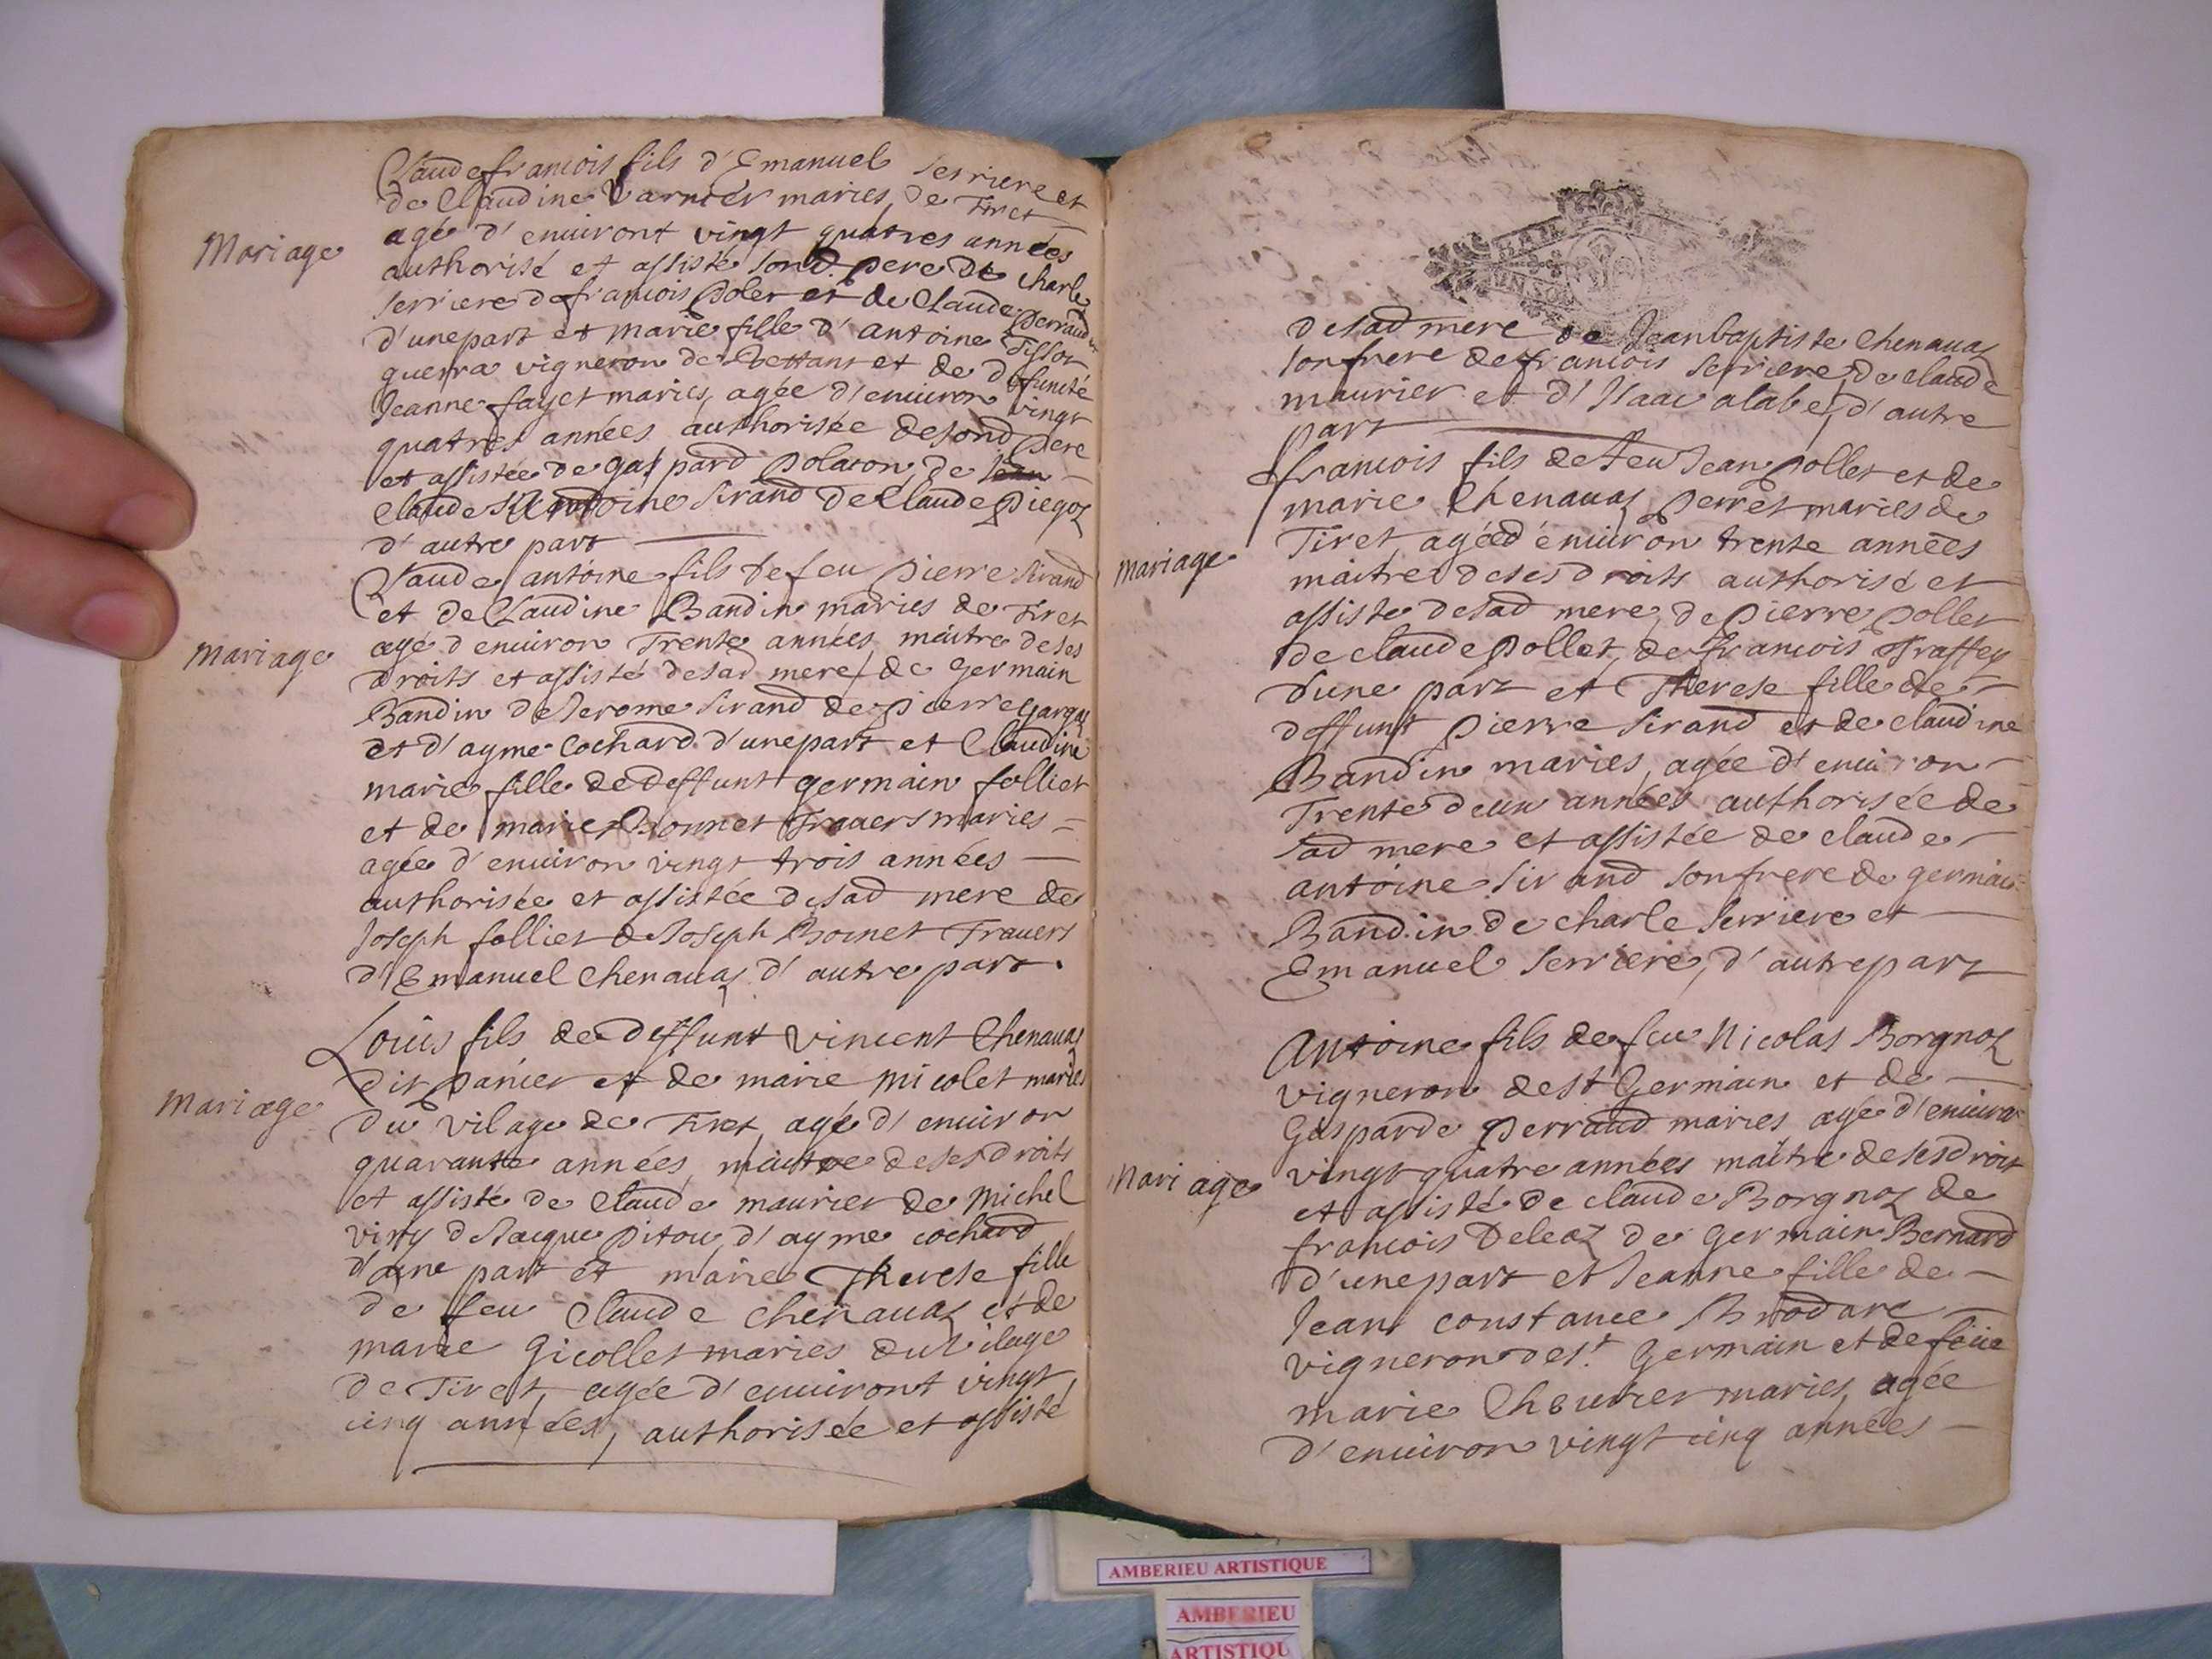 Claude francois fils d'Emanuel Serriere et
de Claudine Varnier maries, de Tiret
Mariage
agé d'enuiront vingt quatres années
authorisé et assisté sond. pere de Charle
Serriere de francois Polet et de Claude Perraudin
d'unepart et marie fille d'antoine Tissot
guerra vigneron de Bettant et de deffuncté
Jeanne fayet maries, agée d'enuiron vingt
quatres années authorisée desond pere
et assistée de gaspard Polaton, de
Claude antoine Sirand de Claude Piegoz
d'autre part
Claude antoine fils de feu Pierre Sirand
et de Claudine Bandin maries de Tiret
Mariage
agé d'enuiron Trente années, maitre deses
droits et assisté desad mere, de Germain
Bandin de Jerome Sirand de Pierre Gargaz
et d'ayme Cochard d'unepart et Claudine
marie fille de deffunt germain folliet
et de marie Bonnet Trauers maries =
agée d'enuiron vingt trois années
authorisée et assistée desad mere de
Joseph folliet de Joseph Bonnet Trauers
d'Emanuel Chenauaz d'autre part.
Loüis fils de deffunt vincent Chenauaz
dit Panier et de marie micolet maries
Mariage
du vilage de Tiret, agé d'enuiron
quarante années, maitre desesdroits
et assisté de Claude maurier de Michel
de Jacque Pitou, d'ayme cochard
d'une part et marie Therese fille
de feu Claude Chenauaz et de
marie Gicollet maries du vilage
de Tiret, agée d'enuiront vingt
cinq années, authorisée et assisté
desad mere de Jeanbaptiste Chenauaz
sonfrere de francois Serriere, de claude
maurier et d'Isaac alabe, d'autre
part
francois fils de feu Jean Pollet et de
marie Chenauaz Perret maries de
Mariage
Tiret, agé d'enuiron trente années
maitre deses droits authorisé et
assisté desad mere, de Pierre Pollet
de claude Pollet, de francois Traffey
d'une part et Therese fille de
deffunt Pierre Sirand et de claudine
Bandin maries, agée d'enuiron
Trente deux années authorisée de
sad mere et assistée de claude
antoine Sirand sonfrere de germain
Bandin de charle Serriere et
Emanuel Serriere, d'autrepart
Antoine fils de feu Nicolas Borgnoz
vigneron de St Germain et de
Gasparde Perraud maries agé d'enuiron
Mariage
vingt quatre années maitre desesdroits
et assisté de claude Borgnoz de
francois Deleaz de germain Bernard
d'unepart et Jeanne fille de
Jean constance Brodare
vigneron de St. Germain et de feüe
marie Cheurier maries, agée
d'enuiron vingt cinq années
AMBERIEU ARTISTIQUE
AMBERIEU
ARTISTIQU